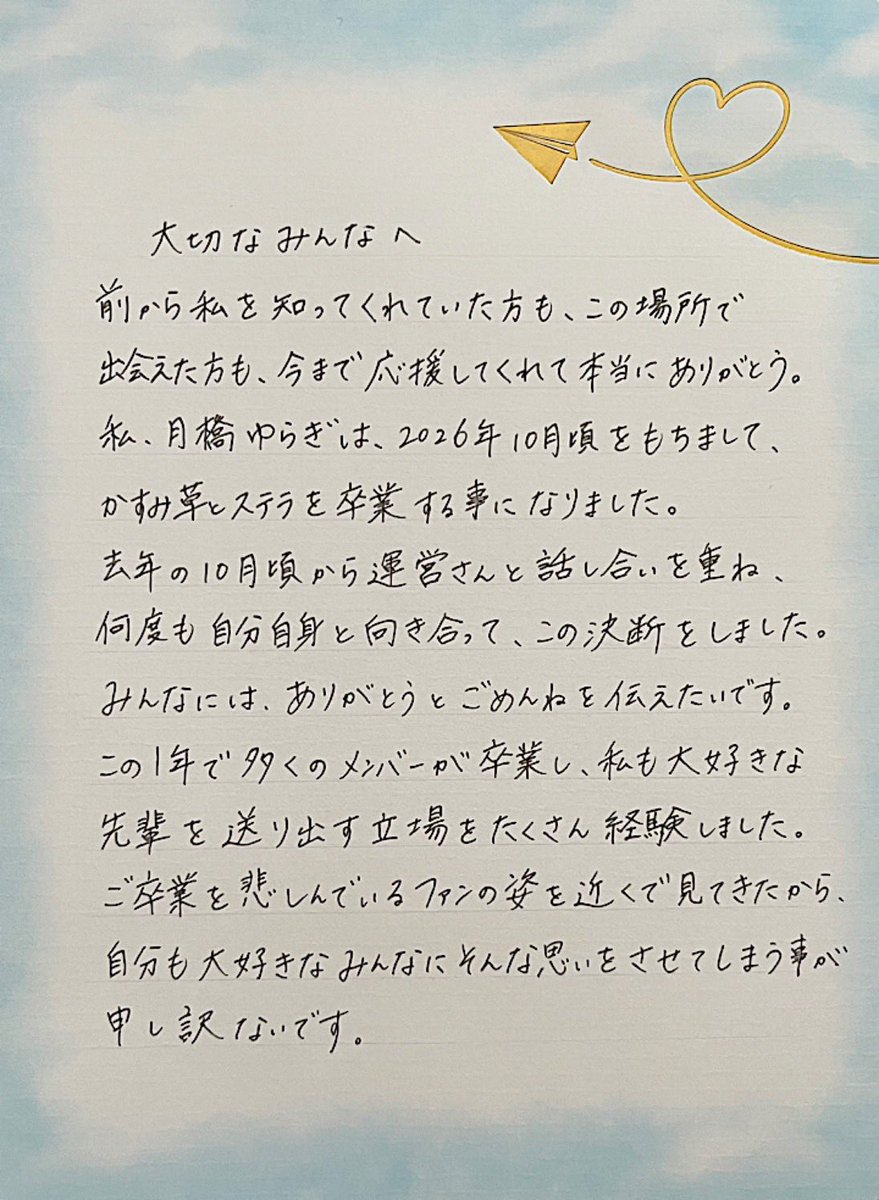 大切なみんなへ
前から私を知ってくれていた方も、この場所で
出会えた方も、今まで応援してくれて本当にありがとう。
私、月橋ゆらぎは、2026年10月頃をもちまして、
かすみ草とステラを卒業する事になりました。
去年の10月頃から運営さんと話し合いを重ね、
何度も自分自身と向き合って、この決断をしました。
みんなには、ありがとうとごめんねを伝えたいです。
この1年で多くのメンバーが卒業し、私も大好きな
先輩を送り出す立場をたくさん経験しました。
ご卒業を悲しんでいるファンの姿を近くで見てきたから、
自分も大好きなみんなにそんな思いをさせてしまう事が
申し訳ないです。